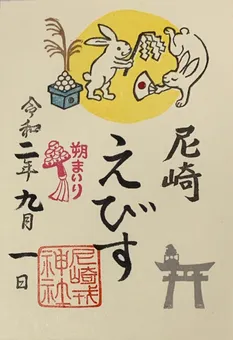 尼崎
えびす
朔まいり
令和二年九月一日
尼崎戎
神社